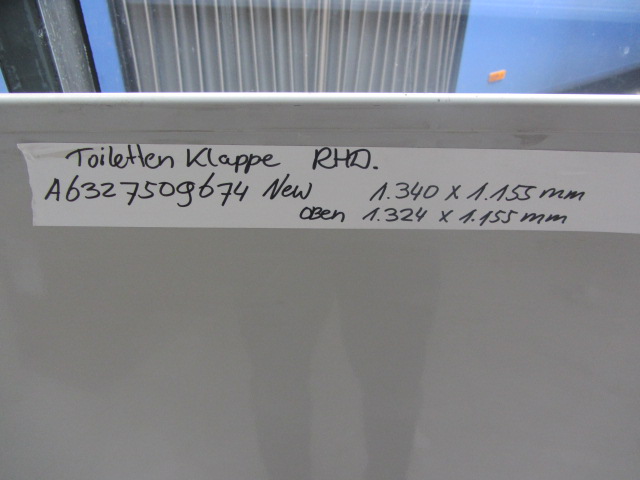 Toiletten Klappe RHD.
A6327509674 New 1.340 x 1.155 mm
OBen 1.324 x 1.155 mm